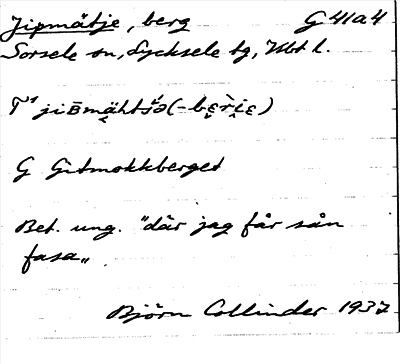 Jipmätje, berg G 41a4
Sorsele sn, Lycksele tg, Vbt l.
G Gitmokkberget
Bet. ung. "där jag får sån
fasa"
Björn Collinder 1937